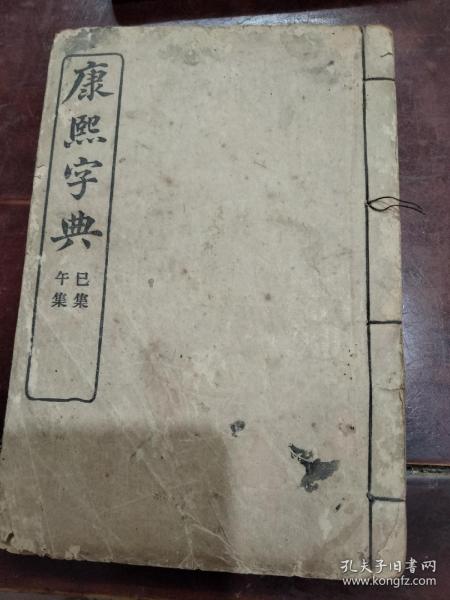 康熙字典
巳集
午集
孔夫子旧书网
www.kongfz.com